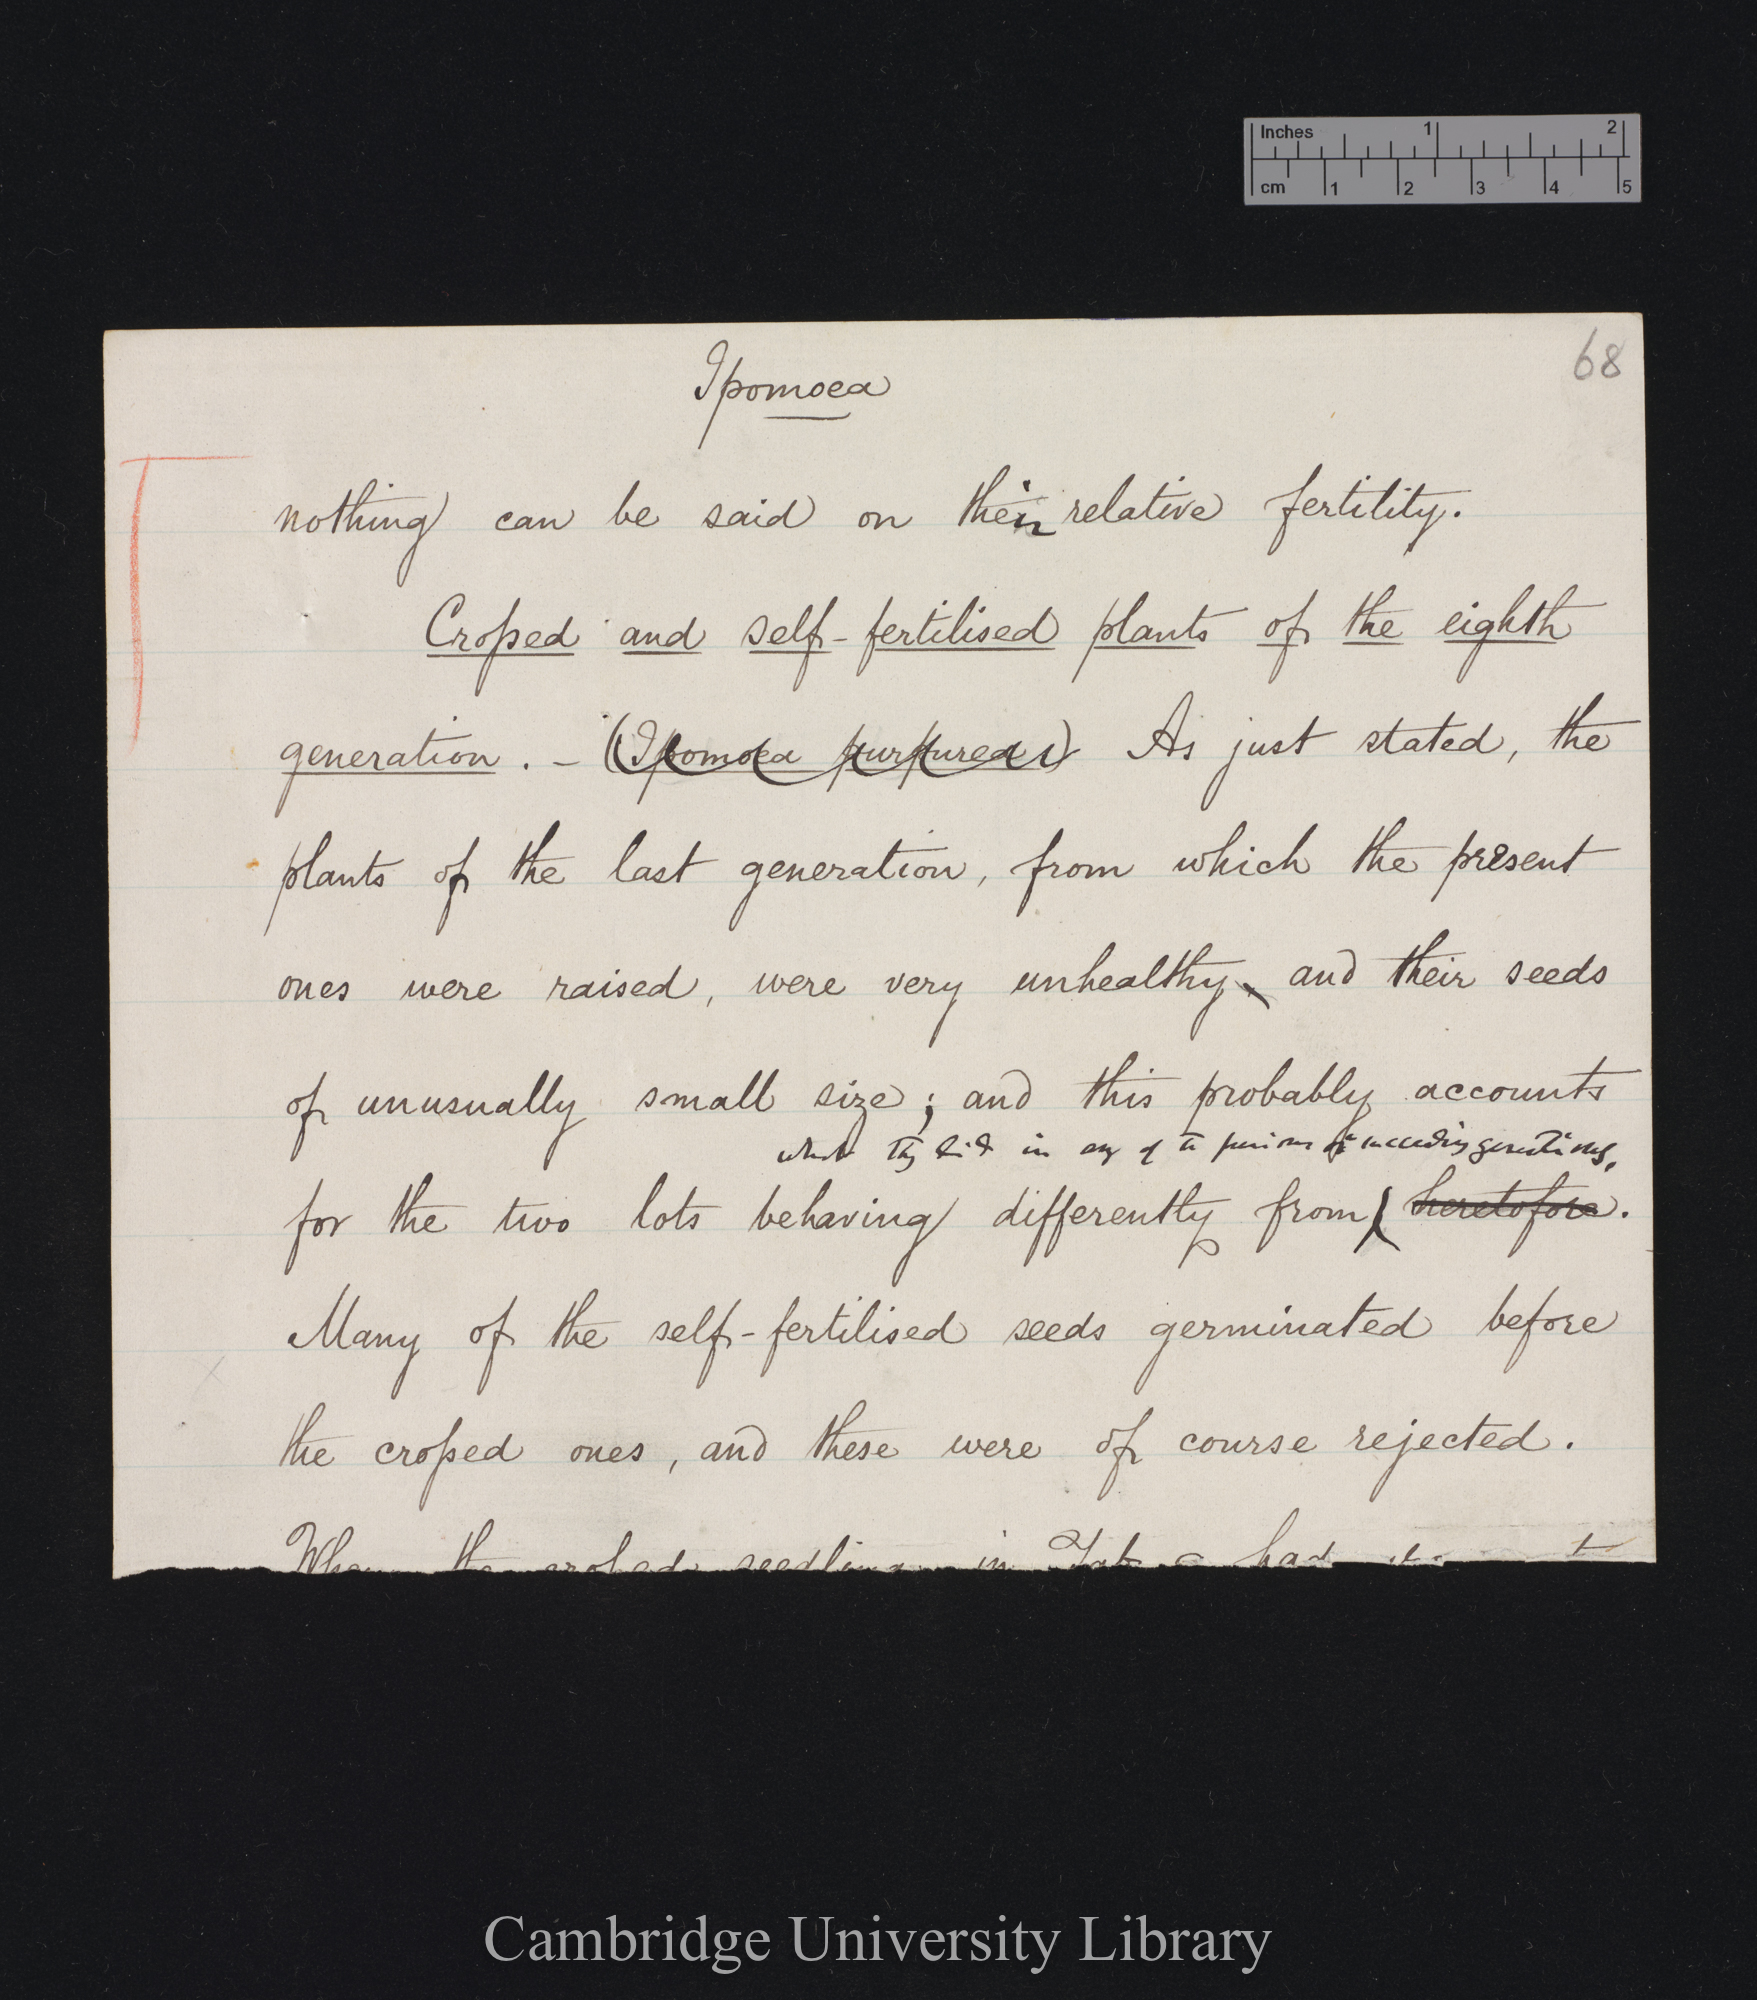 Inches 1 2
cm 1 2 3 4 5
68
Ipomoea
nothing can be said on their relative fertility.
Crossed and self-fertilised plants of the eighth
generation. - (Ipomoea purpurea) As just stated, the
plants of the last generation, from which the present
ones were raised, were very unhealthy and their seeds
of unusually small size; and this probably accounts
what they did in any of the previous or succeeding generations,
for the two lots behaving differently from heretofore.
Many of the self-fertilised seeds germinated before
the crossed ones, and these were of course rejected.
When the crossed seedlings in Table had
Cambridge University Library